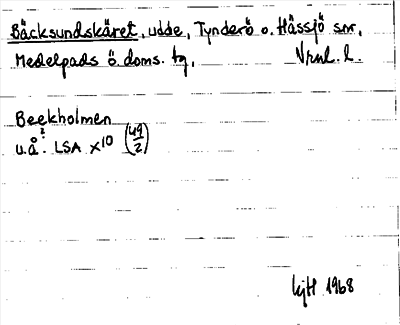 Bäcksundskäret, udde, Tynderö o. Hässjö snr,
Medelpads ö. doms. tg, Vrnl. l.
Beekholmen
u.å? LSA X10 (49/2)
1968